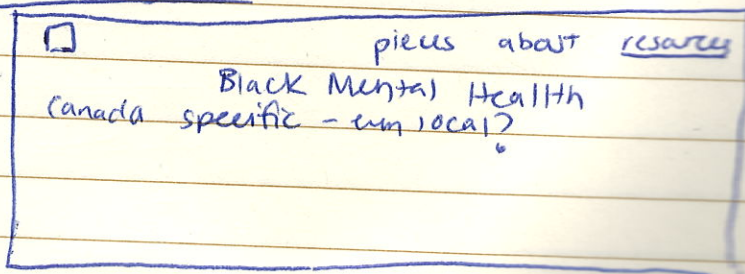 pieces about resources
Black Mental Health
Canada specific - even local?